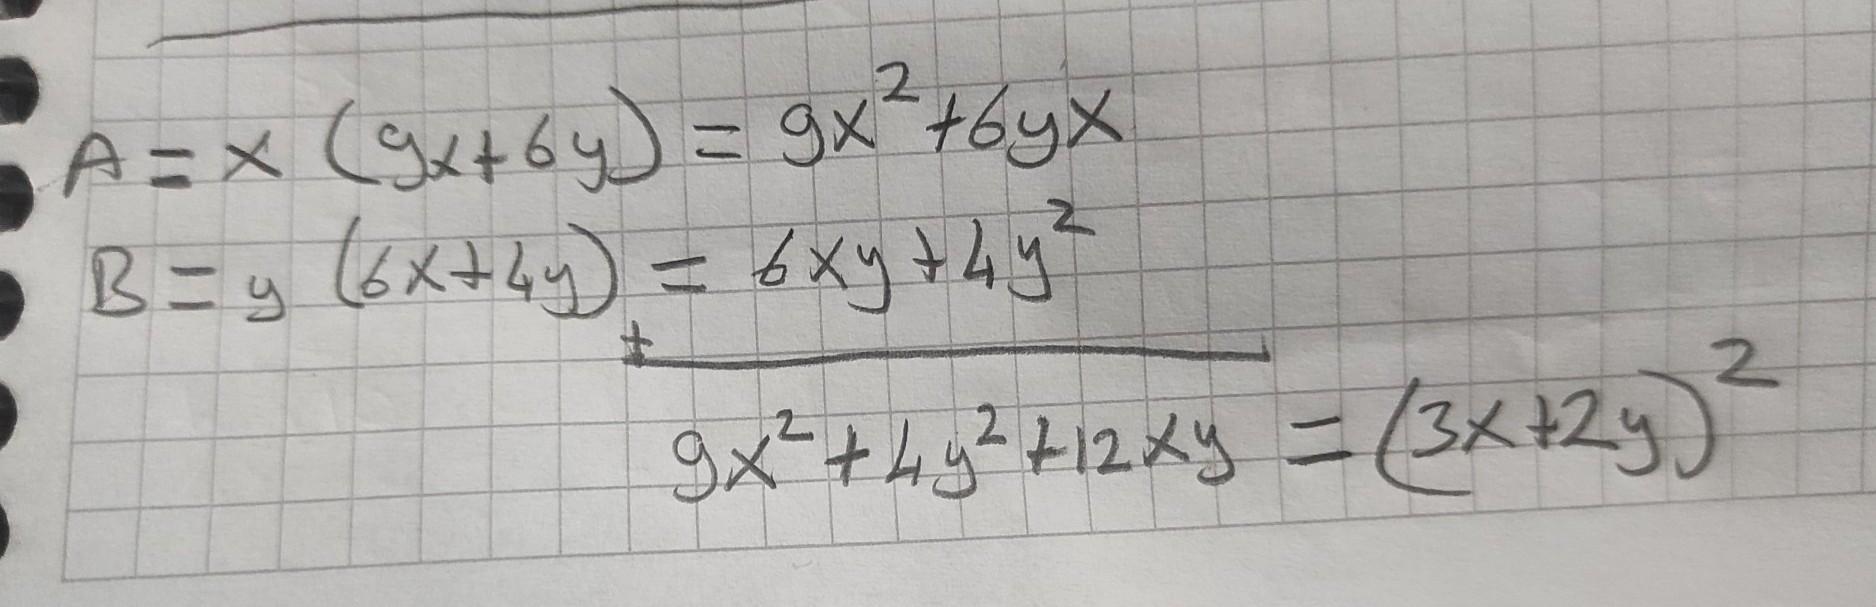 A = x (9x+6y) = 9x²+6yx
B = y (6x+4y) = 6xy+4y²
+
9x²+4y²+12xy = (3x+2y)²